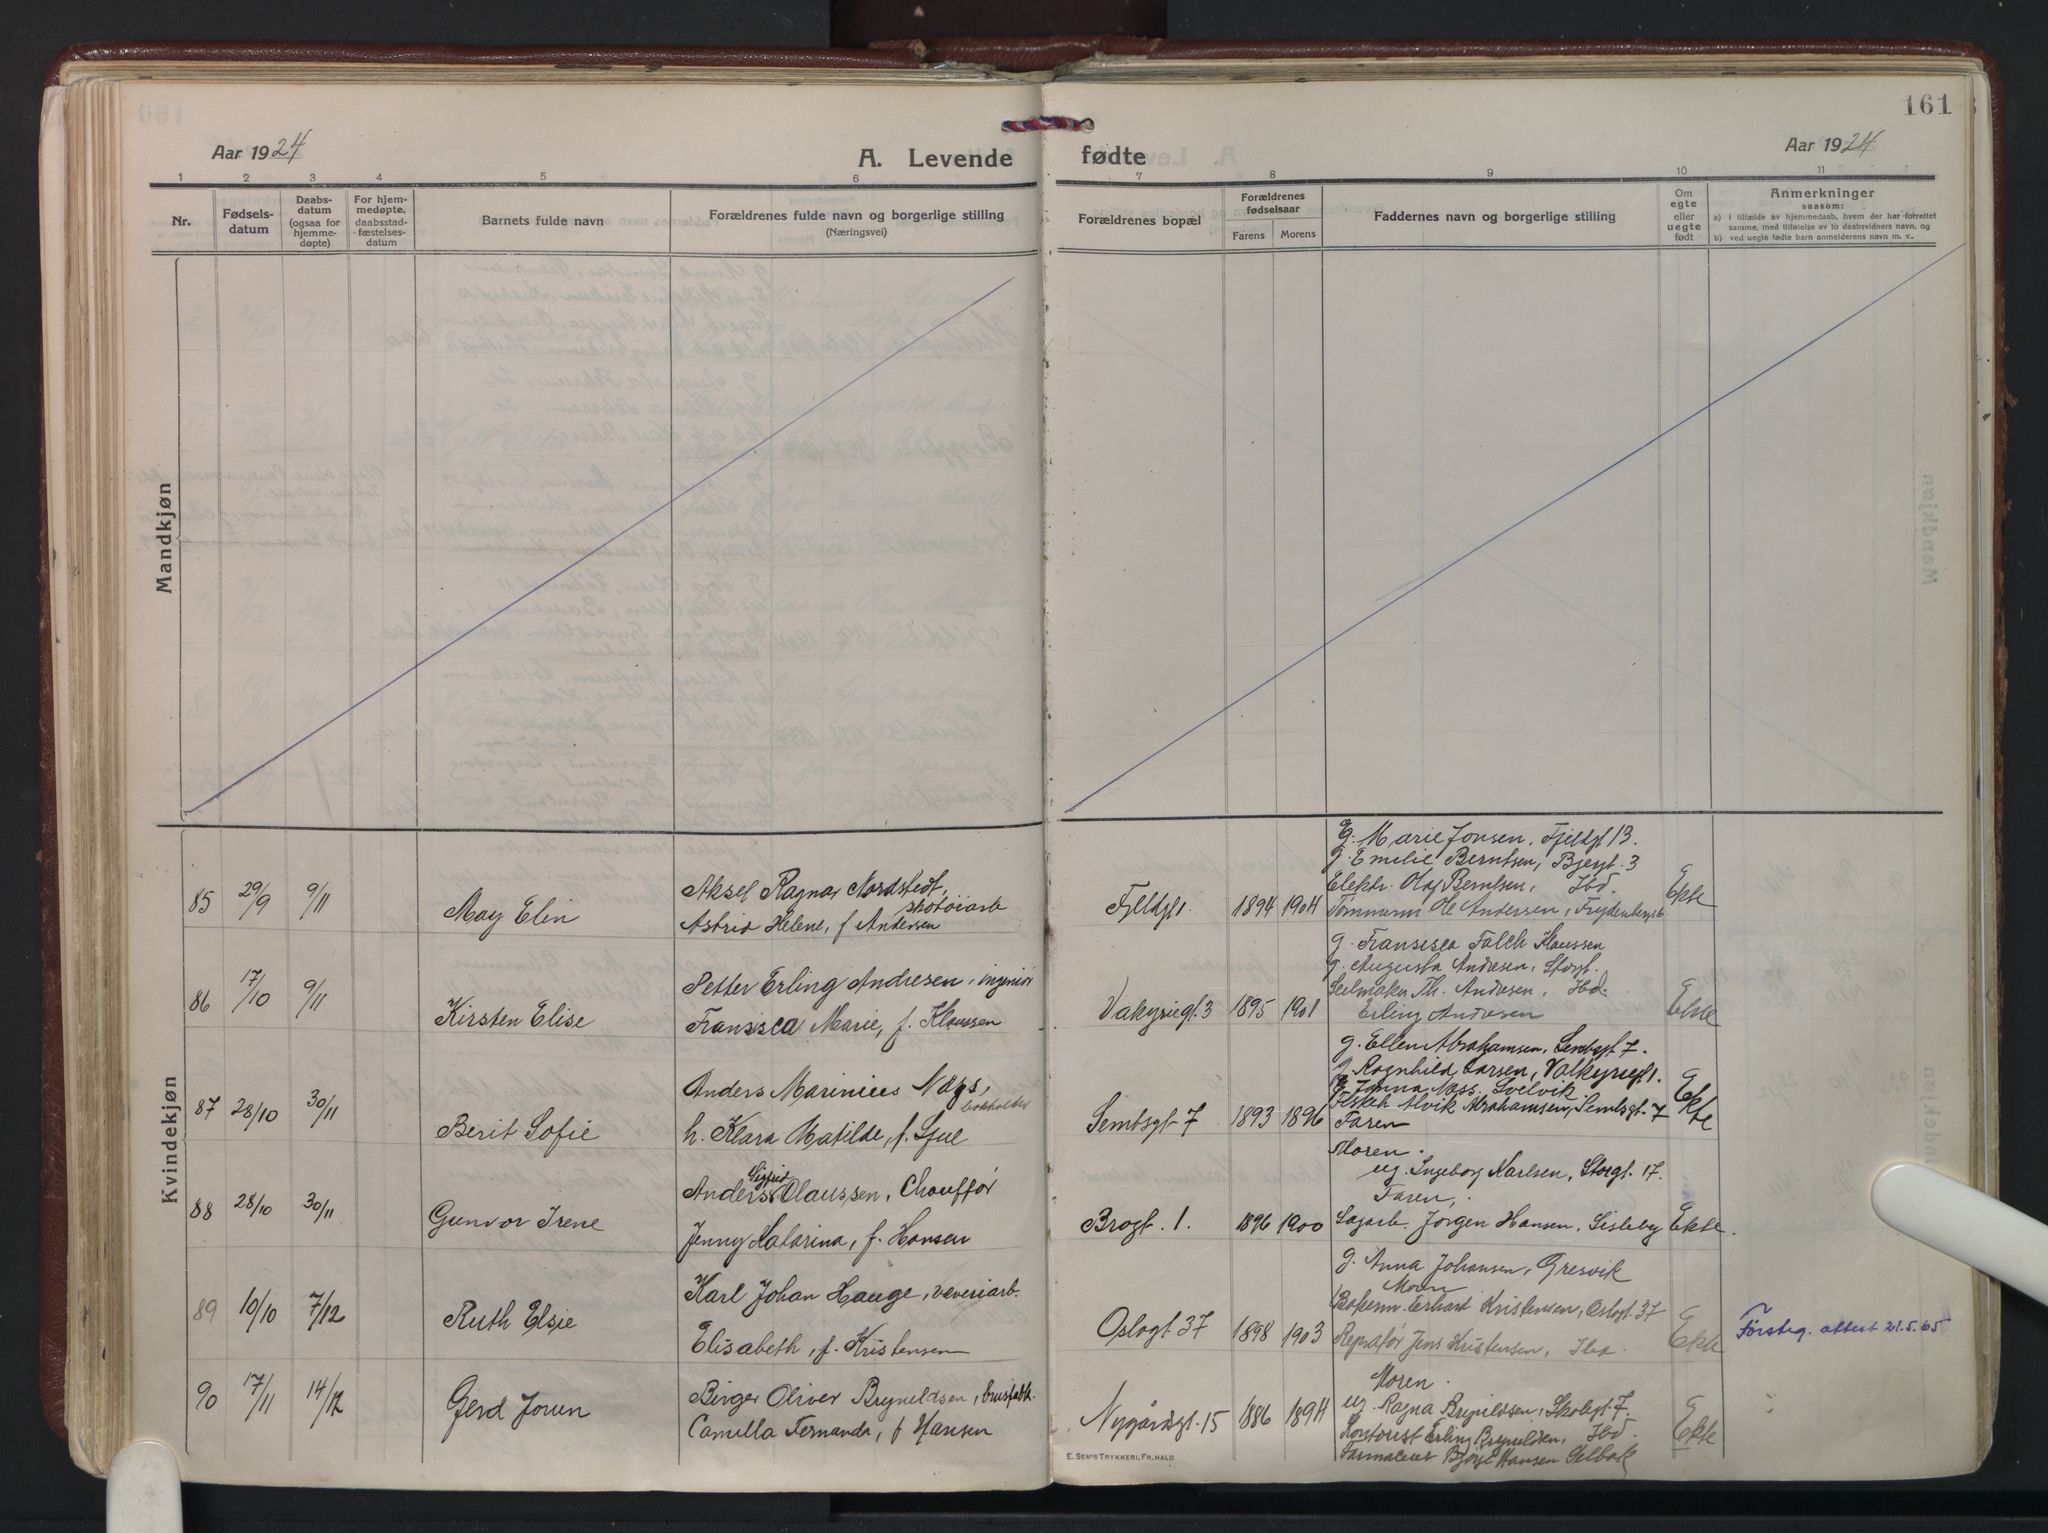 161
Aar 1924
A. Levende fødte
Aar 1924
1 2 3 4 5 6 7 8 9 10 11
Nr.
Fødsels-
datum
Daabs-
datum
(ogsaa for
hjemme-
døpte)
For hjem-
medøpte,
daabsstad-
fæstelses-
datum
Barnets fulde navn
Forældrenes fulde navn og borgerlige stilling
(Næringsvei)
Forældrenes bopæl
Forældrenes
fødselsaar
Farens Morens
Faddernes navn og borgerlige stilling
Om
egte
eller
uegte
født
Anmerkninger
saasom:
a) i tilfælde av hjemmedaab, hvem der har forrettet
samme, med tilføielse av to daabsvidners navn, og
b) ved uegte fødte barn anmelderens navn m. v..
Mandkjøn
Kvindekjøn
85 29/9 9/11 May Elin
Aksel Ragnar Nordstedt,
skotøiarb
Astrid Helene, f Andersen
Fjeldgt 1. 1894 1904
g. Marie Jonsen, Fjeldgt 13.
g. Emilie Berntsen, Bjergt. 3
Elektr. Olaf Berntsen, Ibd.
Tømmerm Ole Andersen, Frydenbergt
Ekte
86 17/10 9/11 Kirsten Elise
Petter Erling Andresen, ingeniør
Fransisca Marie, f. Klaussen
Vakyriegt. 3 1895 1901
g. Fransisca Falch Klaussen
g. Augusta Andresen, Storgt.
Seilmaker Th. Andresen, Ibd.
Erling Andresen
Ekte
87 28/10 30/11 Berit Sofie
Anders Marinius Næss,
bokholder
h. Klara Matilde, f. Sjul
Sembsgt 7 1893 1896
g. Ellen Abrahamsen, Sembsgt 7.
g. Ragnhild Larsen, Valkyriegt 1.
g. Janna Næss, Svelvik
Alvik Abrahamsen, Sembsgt. 7
Faren
Ekte
88 28/10 30/11 Gunvor Irene
Sigfrid
Anders Olaussen, Chauffør
Jenny Katarina, f. Hansen
Brogt. 1. 1896 1900
Moren.
ug. Ingeborg Karlsen, Storgt. 17.
Faren,
Sagarb. Jørgen Hansen, Lisleby
Ekte.
89 10/10 7/12 Ruth Elsie
Karl Johan Hauge, veveriarb.
Elisabeth, f. Kristensen
Oslogt 37 1898 1903
g. Anna Johansen, Gresvik
Moren
Bokerm. Erhart Kristensen, Oslogt. 37
Jens Kristensen, Ibd.
Ekte
Førsteg. attest 21.5.65
90 17/11 14/12 Gerd Jorun
Birger Oliver Brynildsen, brusfabk.
Camilla Fernanda, f Hansen
Nygårdsgt. 15 1886 1894
Moren.
ug. Ragna Brynildsen, Skolegt. 7.
Kontorist Erling Brynildsen, Ibd.
Hansen Selbak
Ekte
E. SEM'S TRYKKERI, FR.HALD